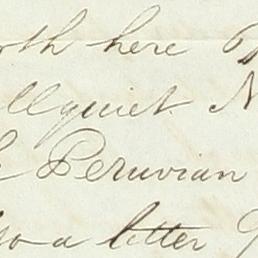 rth here
All quiet. N
Peruvian
a letter